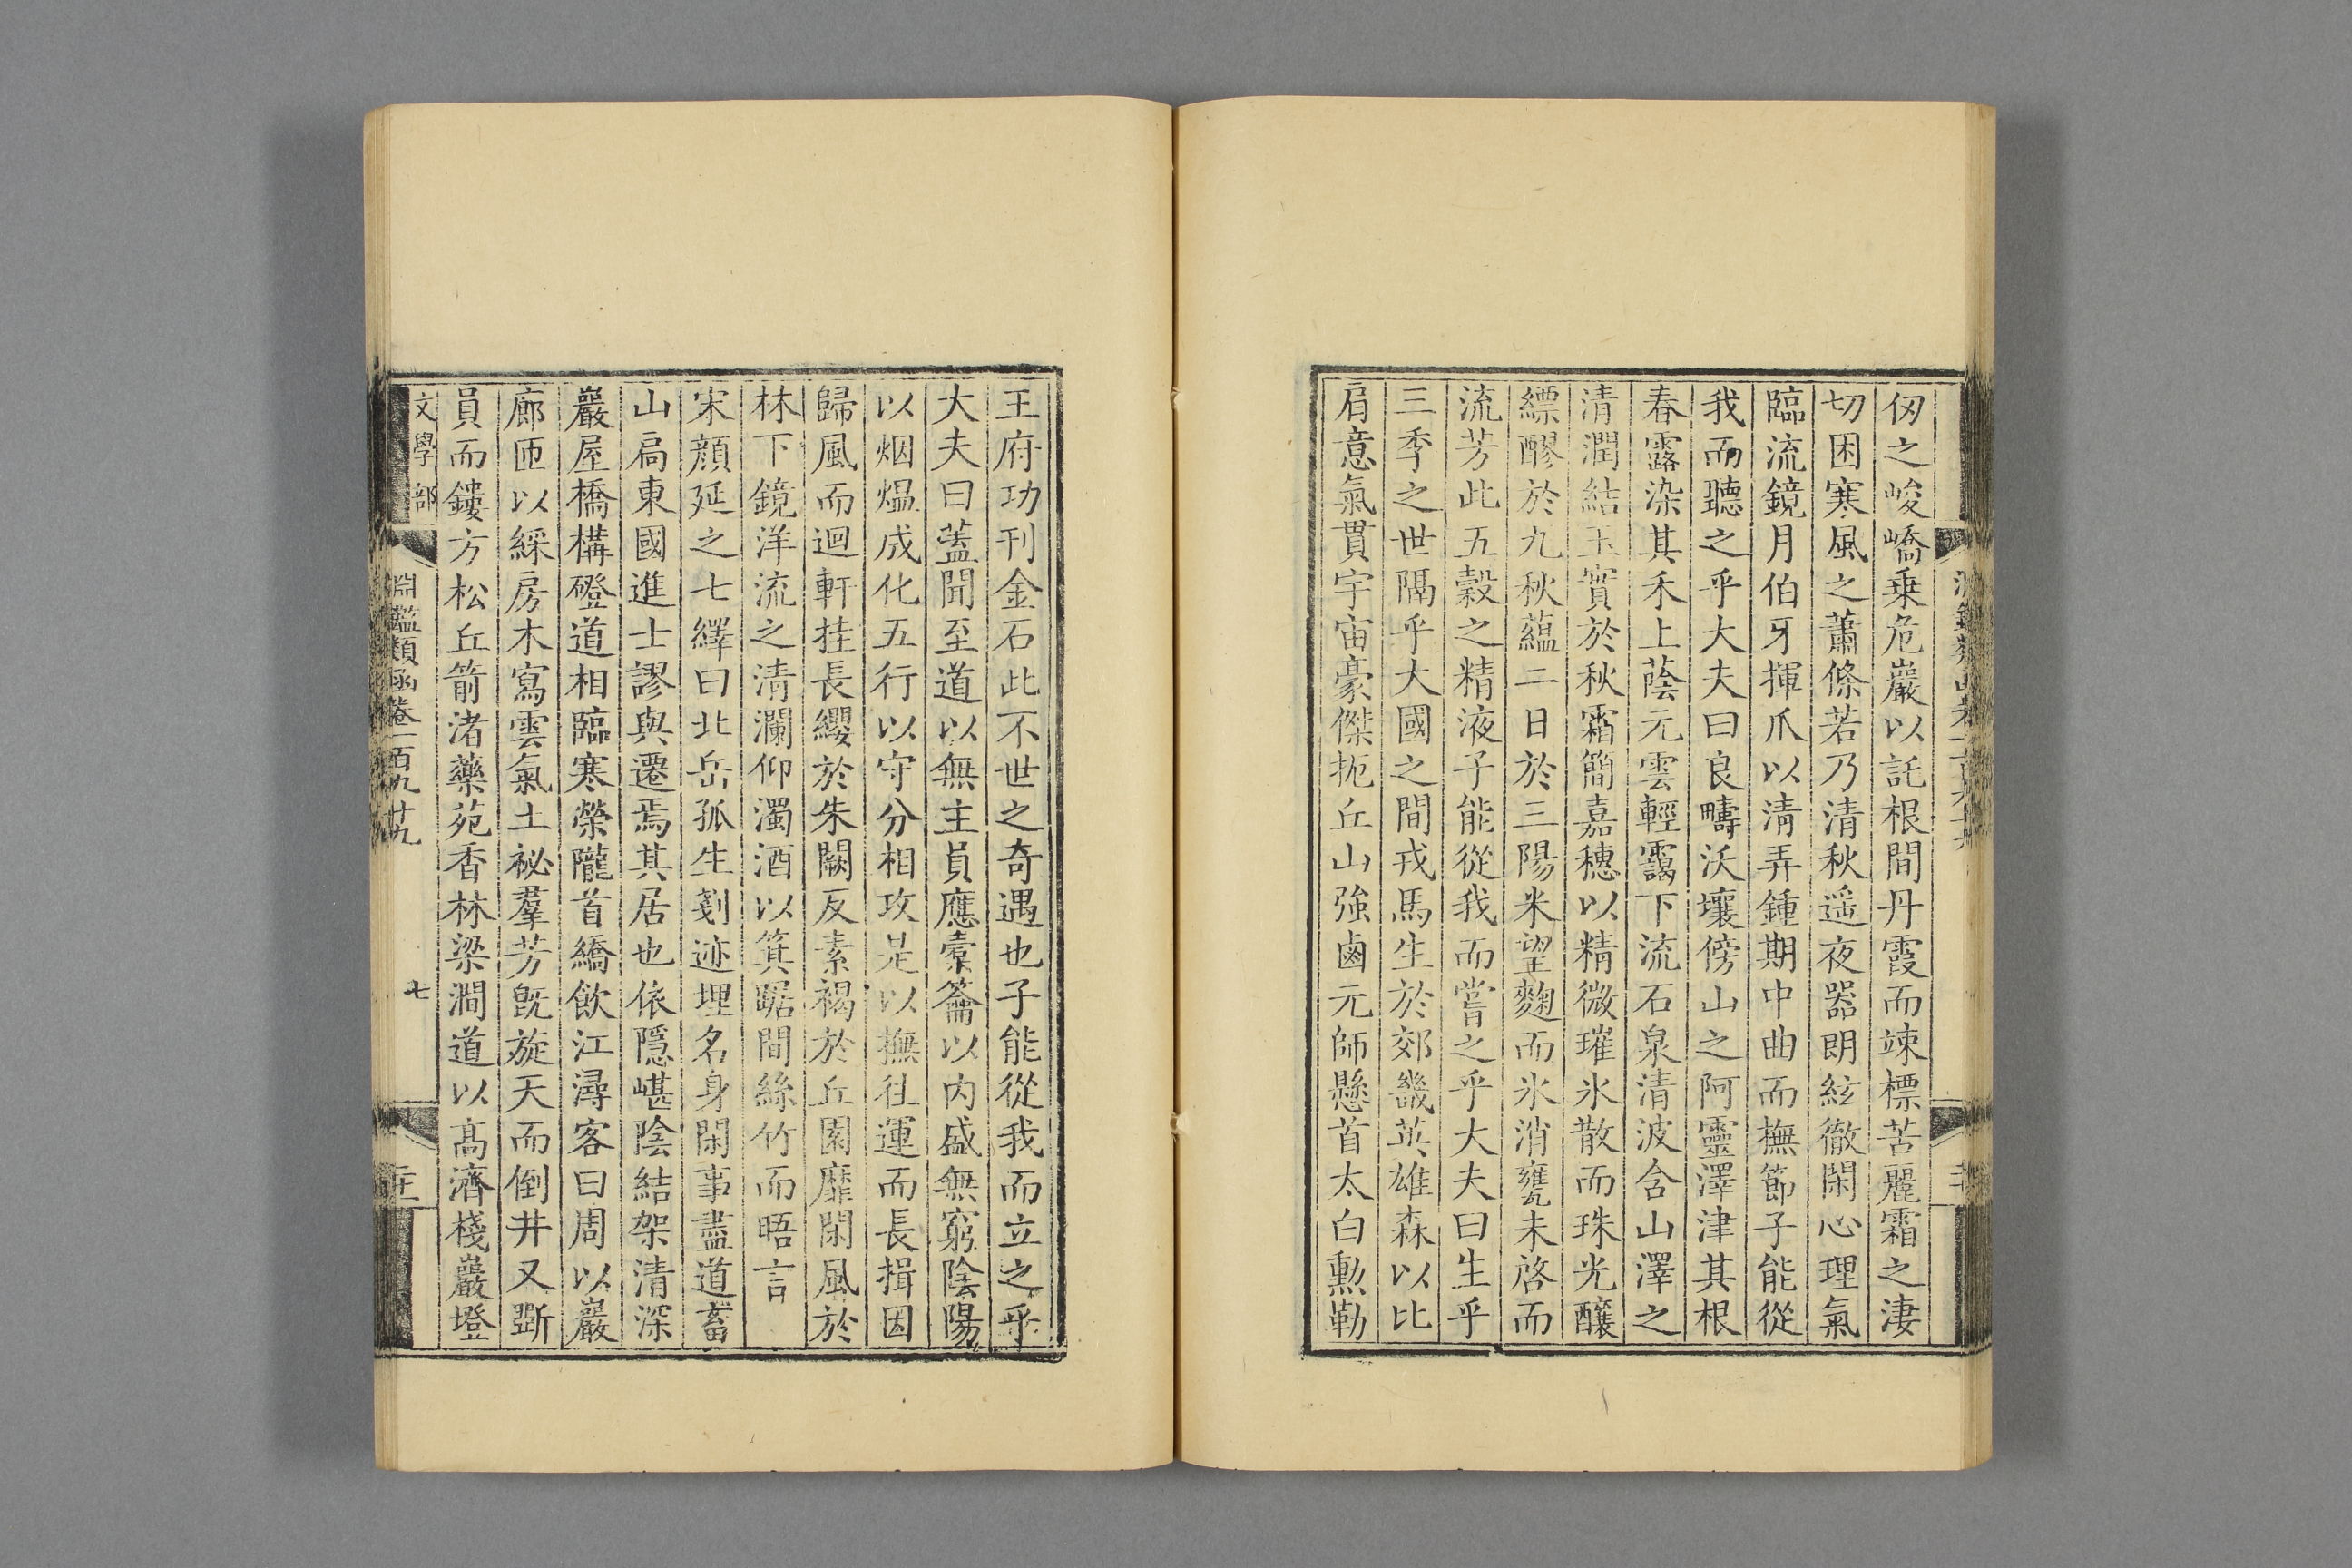 仭之峻嶠乗危巖以託根間丹霞而竦標苦麗霜之淒
切困寒風之蕭條若乃清秋遥夜器朗絃徹閑心理氣
臨流鏡月伯牙揮爪以清弄鍾期中曲而撫節子能從
我而聽之乎大夫曰良疇沃壤傍山之阿靈澤津其根
春露染其禾上蔭元雲輕靄下流石泉清波含山澤之
清潤結玉實於秋霜簡嘉穗以精微璀氷散而珠光釀
縹醪於九秋蘊二日於三陽米望麴而氷消甕未啓而
流芳此五穀之精液子能從我而嘗之乎大夫曰生乎
三季之世隔乎大國之間戎馬生於郊畿英雄森以比
肩意氣貫宇宙豪傑扼丘山強鹵元師懸首太白勲勒
王府功刊金石此不世之奇遇也子能從我而立之乎
大夫曰蓋聞至道以無主貟應槖籥以内盛無窮陰陽
以烟熅成化五行以守分相攻是以撫往運而長揖因
歸風而迴軒挂長纓於朱闕反素褐於丘園靡閑風於
林下鏡洋流之清瀾仰濁酒以箕踞間絲竹而晤言
宋顔延之七繹曰北岳孤生剗迹埋名身閑事盡道畜
山扃東國進士謬與遷焉其居也依隱嵁陰結架清深
巖屋橋構磴道相臨寒榮隴首繑飲江潯客曰周以巖
廊匝以綵房木寫雲氣土祕羣芳旣旋天而倒井又斲
員而鏤方松丘箭渚藥苑香林梁澗道以髙濟棧巖墱
文學部
淵鑑類函卷一百九十九
七